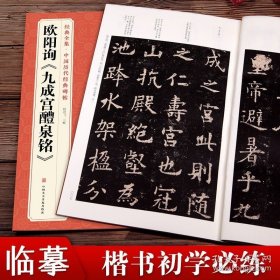 经典全集·中国历代经典碑帖
欧阳询《九成宫醴泉铭》
皇帝避暑乎九
成之宫此則随
之仁壽宫也冠
山抗殿絶壑為
池跨水架楹分
临摹 楷书初学必练